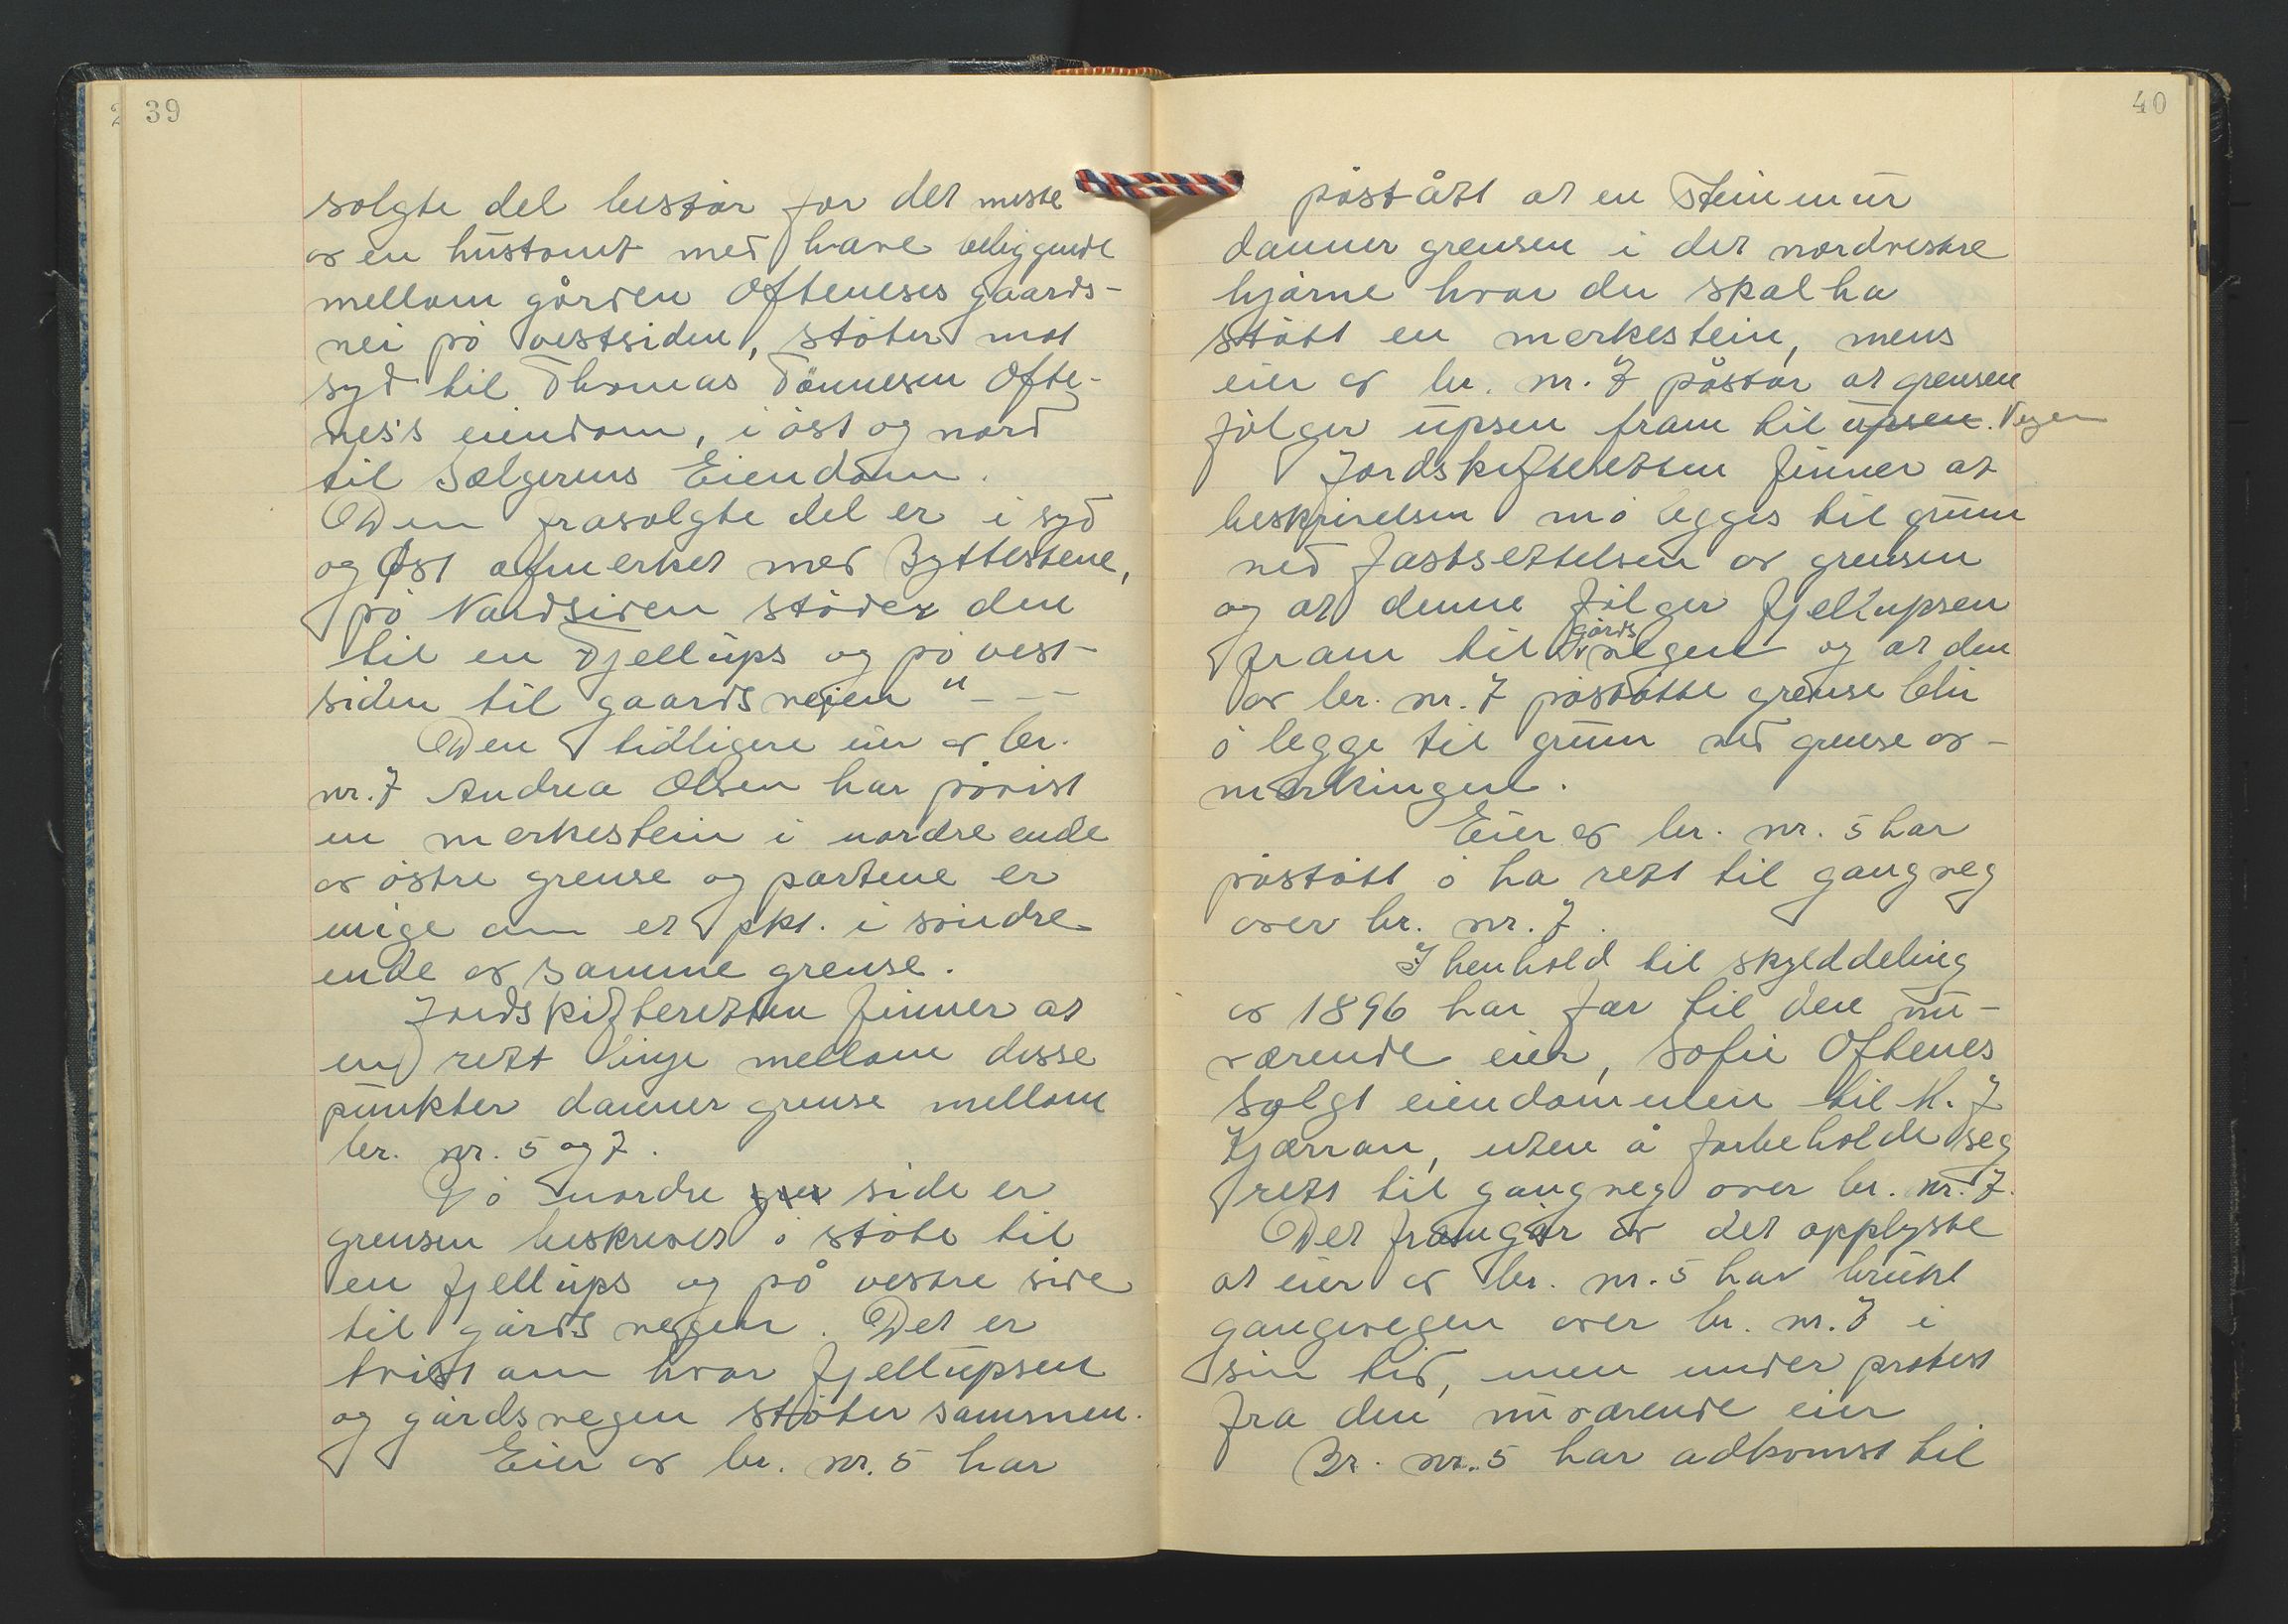 39
solgte del består for det meste
av en hustomt med have beliggende
mellom gården Oftenes's gaards-
vei på vestsiden, støter mot
syd til Thomas Tønnesen Ofte-
nes's eiendom, i øst og nord
til Sælgerens Eiendom.
Den frasolgte del er i syd
og Øst afmerket med Byttestene,
på Nordsiden støder den
til en Fjellups og på vest-
siden til gaardsveien" - - -
Den tidligere eier av br.
nr. 7 Andrea Olsen har påvist
en merkestein i nordre ende
av østre grense og partene er
enige om et pkt. i søndre
ende av samme grense.
Jordskifteretten finner at
en rett linje mellom disse
punkter danner grense mellom
br. nr. 5 og 7.
På nordre side er
grensen beskrevet å støte til
en fjellups og på vestre side
til gårdsvegen. Det er
tvist om hvor fjellupsen
og gårdsvegen støter sammen.
Eier av br. nr. 5 har
40
påstått at en Steinmur
danner grensen i det nordvestre
hjørne hvor du skal ha
stått en merkestein, mens
eier av br. nr. 7 påstår at grensen
følger upsen fram til upsen. Vegen
Jordskifteretten finner at
beskrivelsen må legges til grunn
ved fastsettelsen av grensen
og at denne følger fjellupsen
gårds
fram til vegen og at den
av br. nr. 7 påståtte grense blir
å legge til grunn ved grense av-
merkingen.
Eier av br. nr. 5 har
påstått å ha rett til gangveg
over br. nr. 7.
I henhold til skylddeling
av 1896 har far til den nu-
værende eier, Sofie Oftenes
solgt eiendommen til H. J
Kjørran, uten å forbeholde seg
rett til gangveg over br. nr. 7.
Det framgår av det opplyste
at eier av br. nr. 5 har brukt
gangvegen over br. nr. 7 i
sin tid, men under protest
fra den nuværende eier
Br. nr. 5 har adkomst til